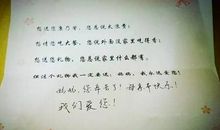 想送您康乃馨，您总说太浪费；
想请您吃大餐，您说外面没家里吃得香；
想送您礼物，您总说家里什么都有，
但这个礼物我一定要送，妈妈，我永远爱您！
妈妈，您辛苦了！母亲节快乐！
我们爱您！